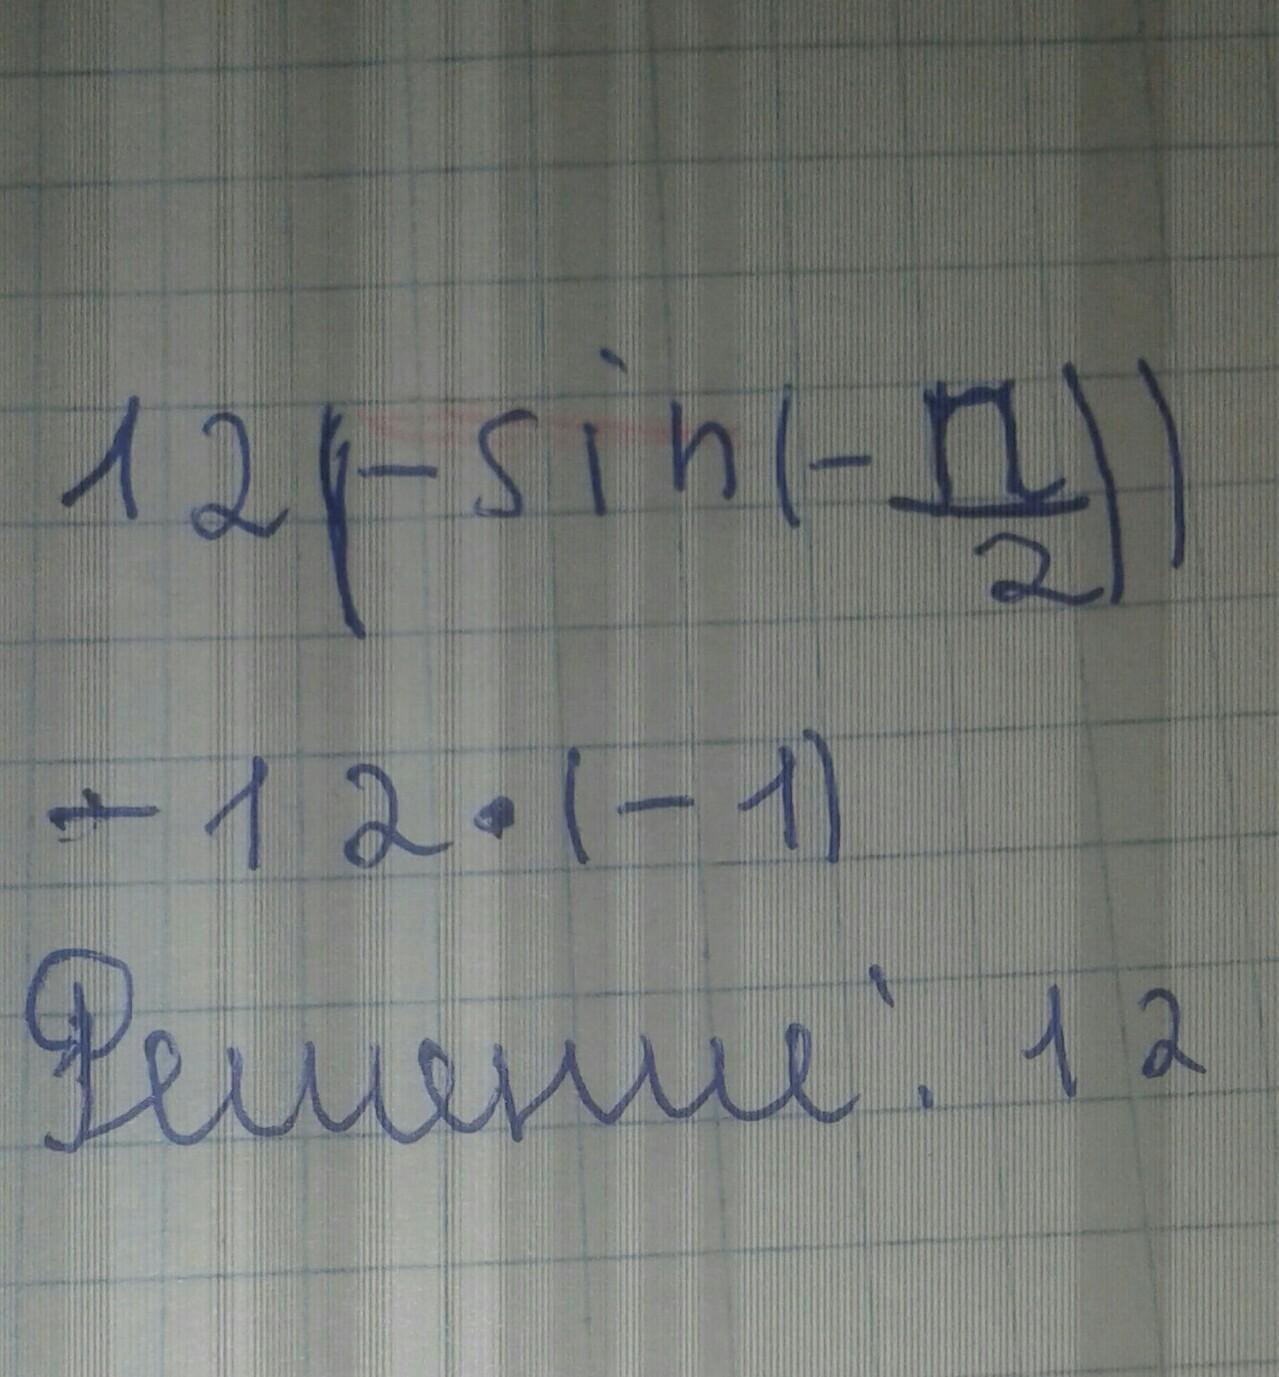 12(-sin(-π/2))
-12·(-1)
Решение: 12